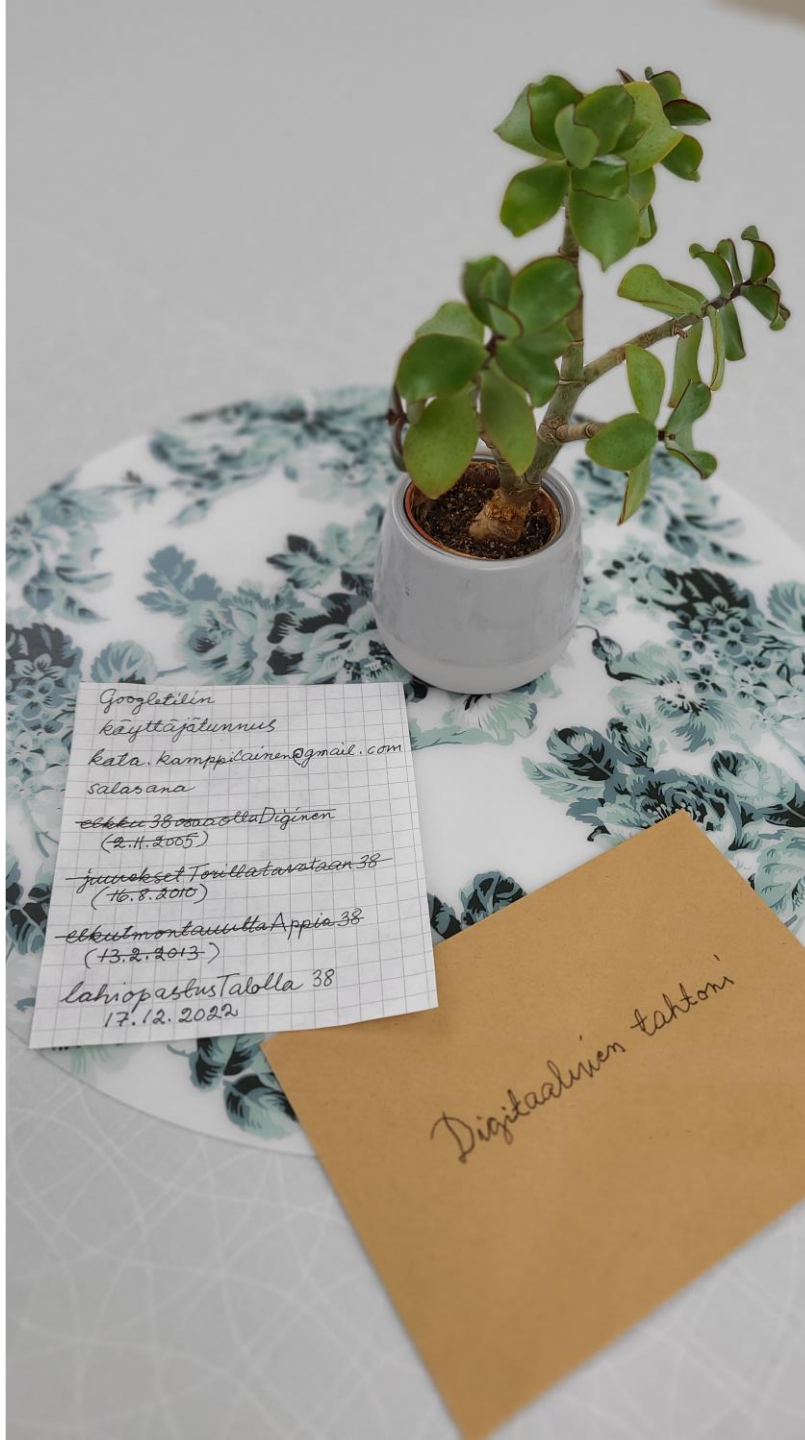 Googletilin
käyttäjätunnus
kata.kamppilainen@gmail.com
salasana
elkku 38 osaaollaDiginen
(2.11.2005)
juuokset Torillatavataan 38
(16.8.2010)
elkutmontauutta Appia 38
(13.2.2013)
lahiopastusTalolla 38
17.12.2022
Digitaalinen tahtoni